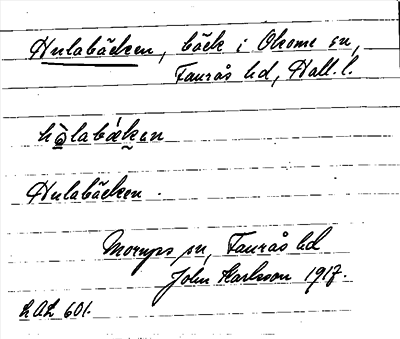 Hulabäcken, bäck i Okome sn,
Faurås hd, Hall. l.
hòlabákən
Hulabäcken.
Morups sn, Faurås hd
John Karlsson 1917.
LAL 601.